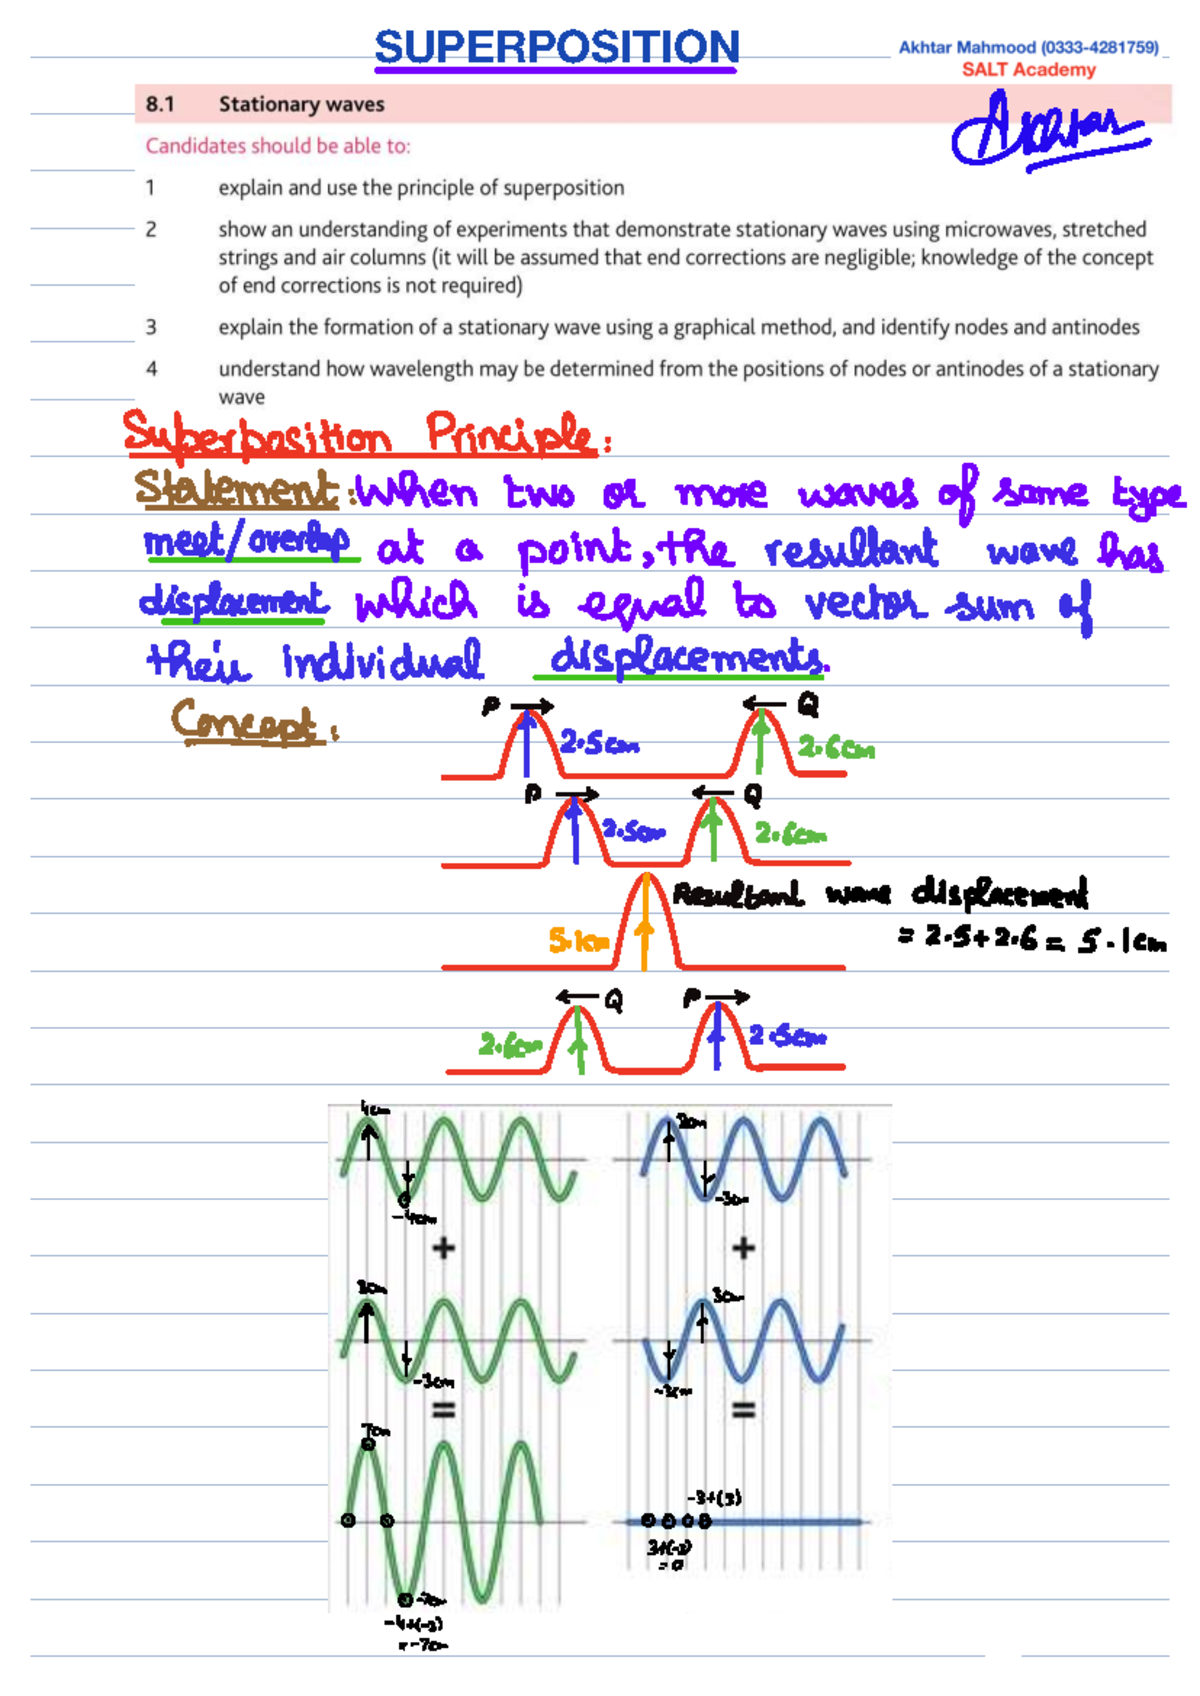 SUPERPOSITION
Akhtar Mahmood (0333-4281759)
SALT Academy
Akhtar
8.1 Stationary waves
Candidates should be able to:
1 explain and use the principle of superposition
2 show an understanding of experiments that demonstrate stationary waves using microwaves, stretched
strings and air columns (it will be assumed that end corrections are negligible; knowledge of the concept
of end corrections is not required)
3 explain the formation of a stationary wave using a graphical method, and identify nodes and antinodes
4 understand how wavelength may be determined from the positions of nodes or antinodes of a stationary
wave
Superposition Principle:
Statement: When two or more waves of same type
meet/overlap at a point, the resultant wave has
displacement which is equal to vector sum of
their individual displacements.
Concept:
P Q
2.5cm 2.6cm
P Q
2.5cm 2.6cm
Resultant wave displacement
5.1cm = 2.5+2.6 = 5.1cm
Q P
2.6cm 2.5cm
4cm 3cm
-4cm -3cm
+ +
3cm 3cm
-3cm -3cm
= =
7cm
-3+(3)
3+(-3)
= 0
-7cm
-4+(-3)
= -7cm